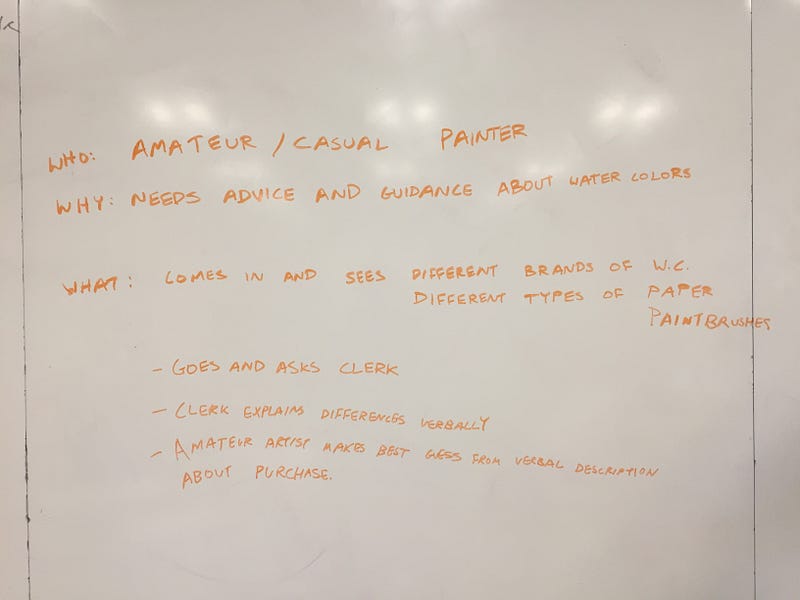 WHO: AMATEUR / CASUAL PAINTER
WHY: NEEDS ADVICE AND GUIDANCE ABOUT WATER COLORS
WHAT: COMES IN AND SEES DIFFERENT BRANDS OF W.C.
DIFFERENT TYPES OF PAPER
PAINTBRUSHES
- GOES AND ASKS CLERK
- CLERK EXPLAINS DIFFERENCES VERBALLY
- AMATEUR ARTIST MAKES BEST GUESS FROM VERBAL DESCRIPTION
ABOUT PURCHASE.